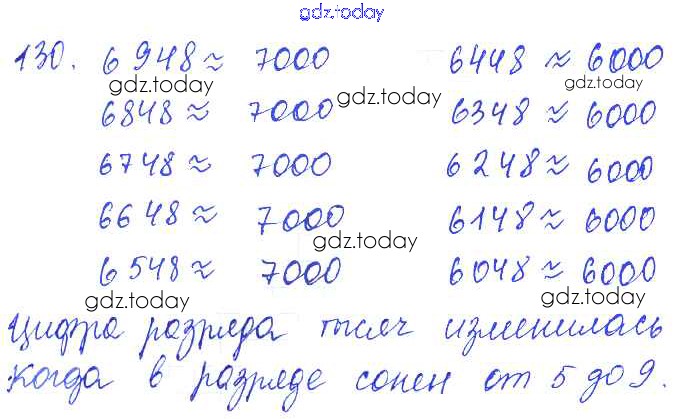 gdz.today
130. 6948 ≈ 7000 6448 ≈ 6000
gdz.today gdz.today gdz.today
6848 ≈ 7000 6348 ≈ 6000
6748 ≈ 7000 6248 ≈ 6000
6648 ≈ 7000 6148 ≈ 6000
gdz.today
6548 ≈ 7000 6048 ≈ 6000
gdz.today gdz.today
Цифра разряда тысяч изменилась
когда в разряде сотен от 5 до 9.